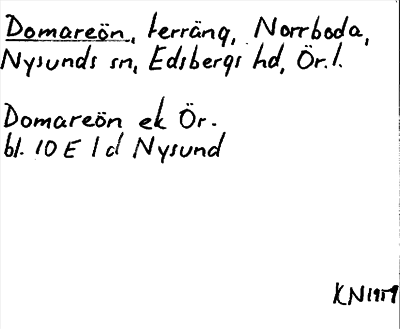 Domareön, terräng, Norrboda,
Nysunds sn, Edsbergs hd, Ör. l.
Domareön ek Ör.
bl. 10 E 1 d Nysund
KN 1959